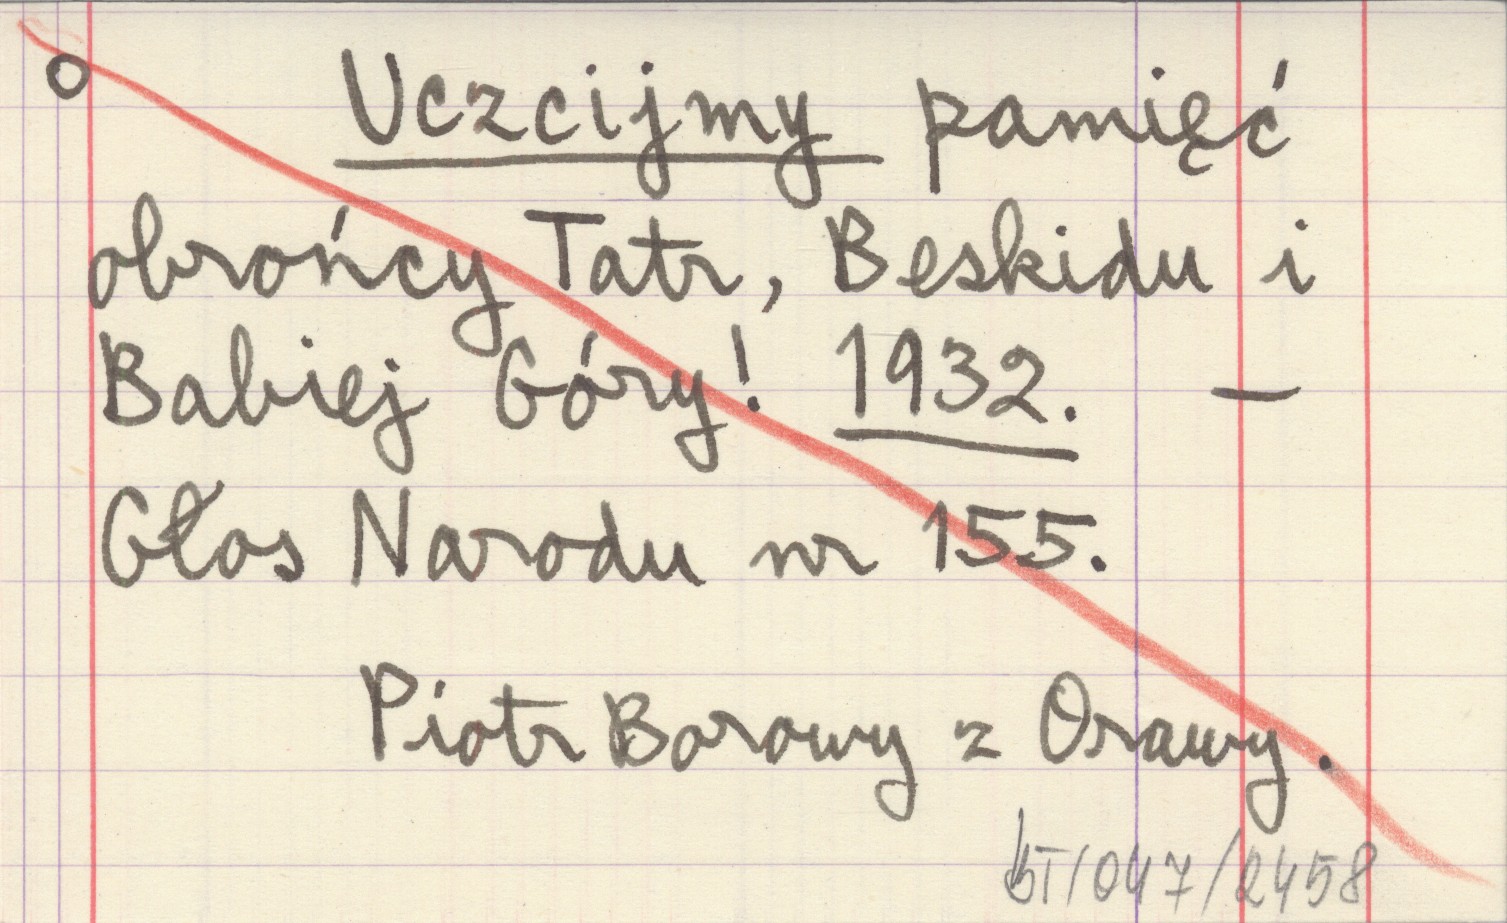 Uczcijmy pamięć
obrońcy Tatr, Beskidu i
Babiej Góry! 1932. —
Głos Narodu nr 155.
Piotr Borowy z Orawy.
/047/2458